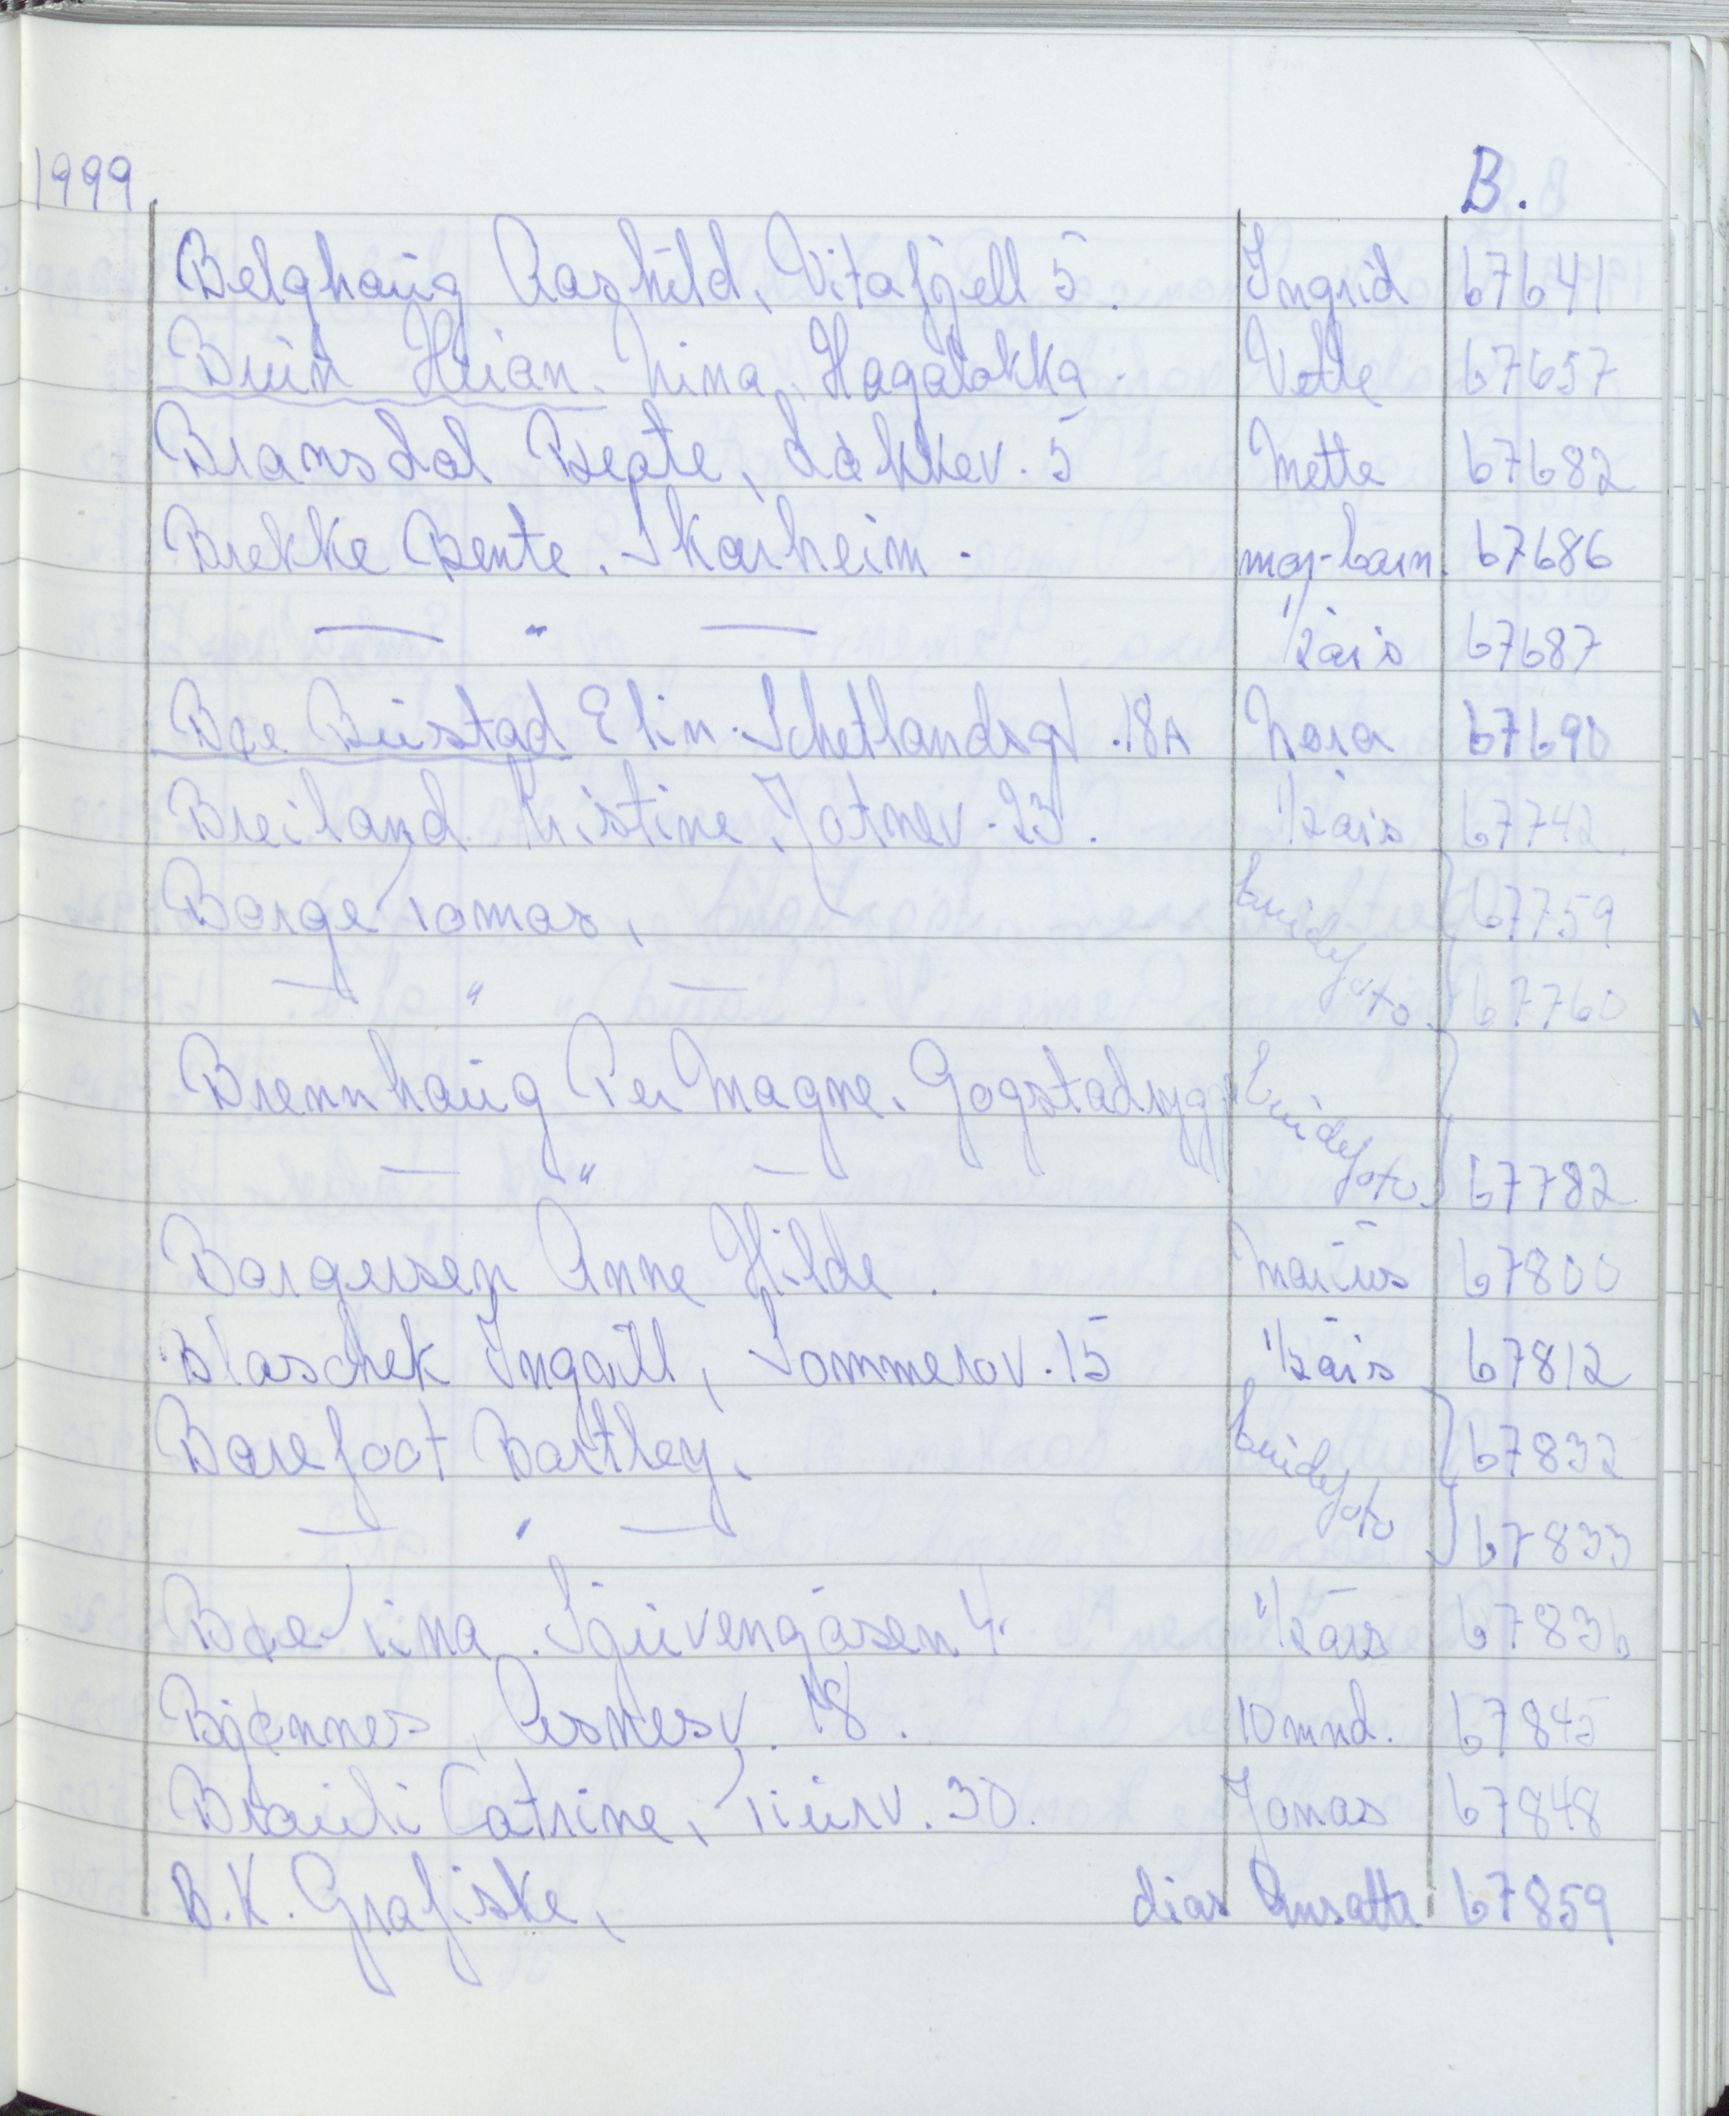 1999. B.
Belghaug Aashild, Vitafjell 5. Ingrid 67641
Bruun Hvian. Nina, Hagaløkka. Vette 67657
Bransdal Beate, Løkkev. 5 Mette 67682
Brekke Bente. Skarheim. mor-barn. 67686
— " — 1/2 års 67687
Bøe Bustad Elin. Schetlandsgt. 18A Nora 67690
Breiland Kristine, Jotnev. 23. 1/2 års 67742.
Borge Tomas, brudefoto 67759
— " — 67760
Brennhaug Per Magne. brudefoto
— " — 67782
Borgersen Anne Hilde. Marius 67800
Blaschek Ingvill, Sommerov. 15 1/2 års 67812
Barefoot Bartley, brudefoto 67832
— " — 67833
Bøe Tina. 4. 1/2 års 67836
Bjønnes, 18. 10 mnd. 67845
Catrine, Tiurv. 30. Jonas 67848
B.K. Grafiske, dias 67859